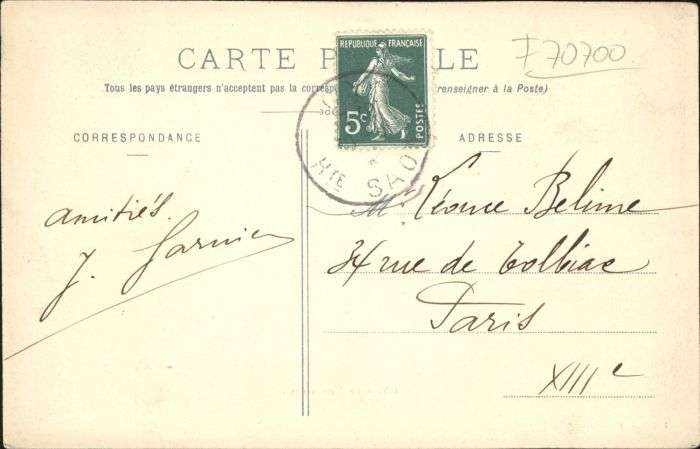 CARTE P LE
F70700
RÉPUBLIQUE FRANÇAISE
5c
POSTES
Tous les pays étrangers n'acceptent pas la corresp renseigner à la Poste)
CORRESPONDANCE
ADRESSE
Hte SAO
amitiés.
J. Garnier
M. Léonce Belime
34 rue de Tolbiac
Paris
XIIIe